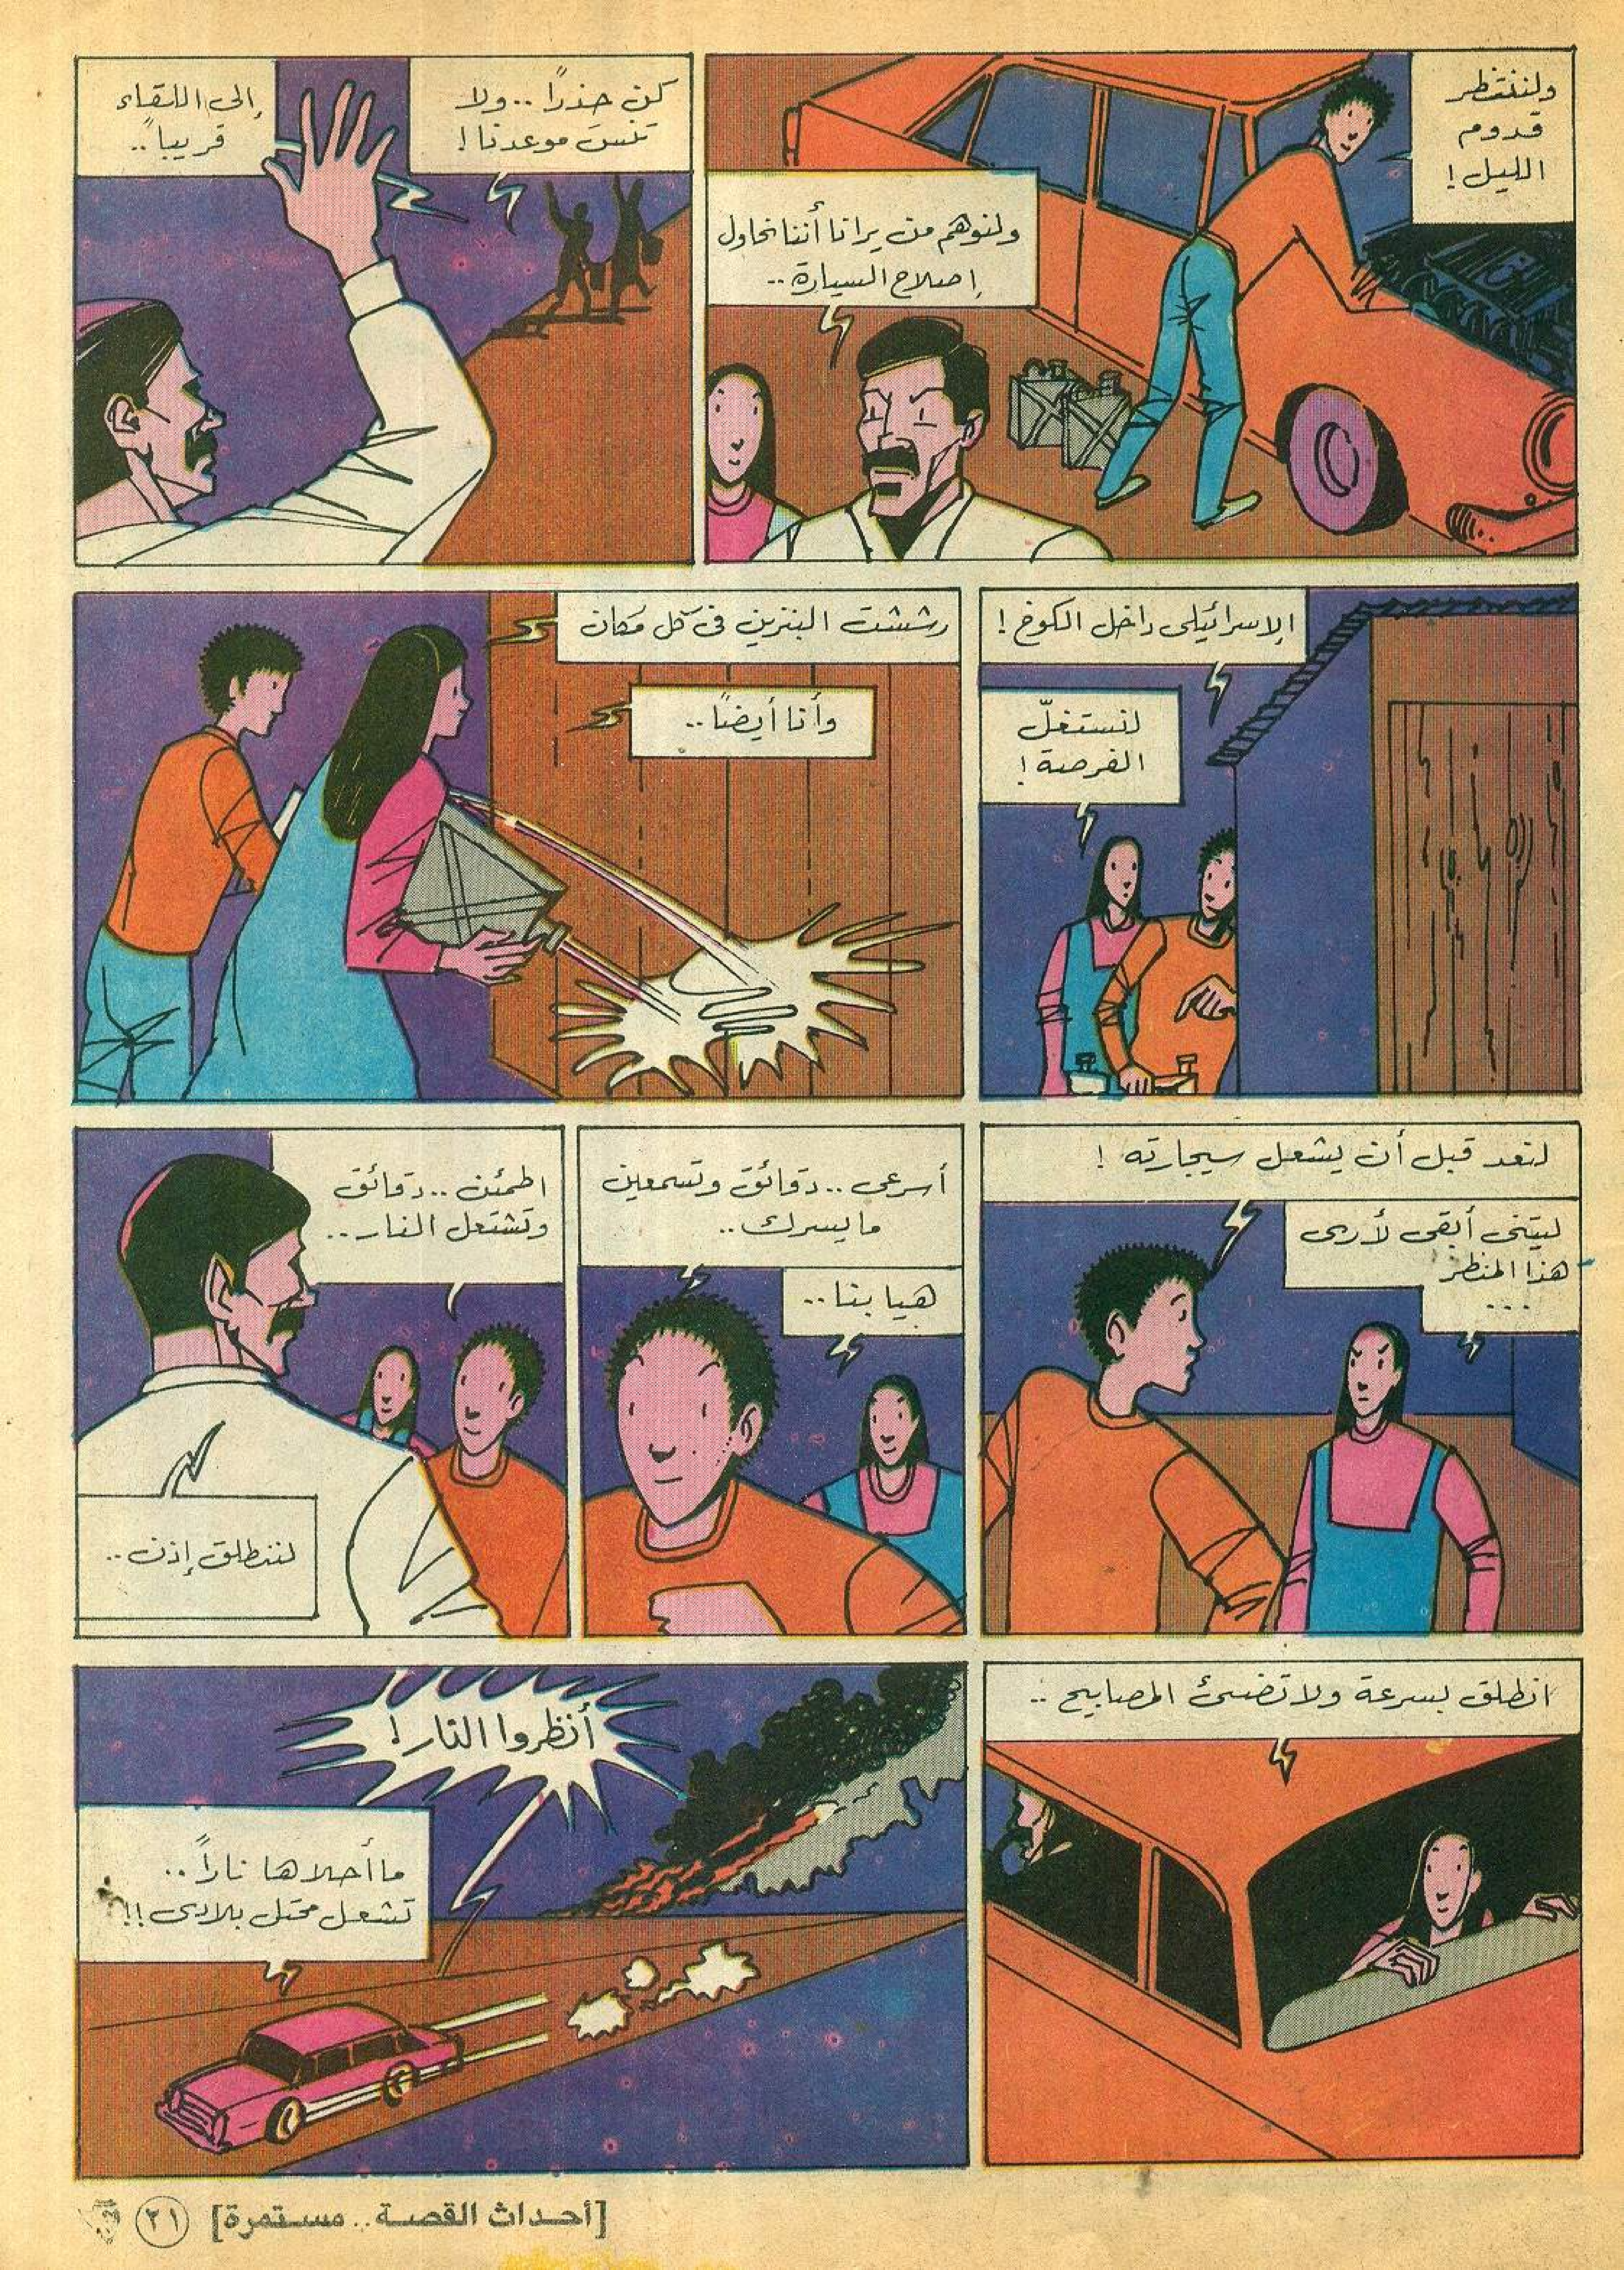 ولننتظر
قدوم
الليل !
ولنوهم من يرانا أننا نحاول
إصلاح السيارة ..
كن حذرًا .. ولا
تنسَ موعدنا !
إلى اللقاء
قريباً ..
الإسرائيلى داخل الكوخ !
لنستغلّ
الفرصة !
رششت البنزين فى كل مكان
وأنا أيضًا ..
لنعد قبل أن يشعل سيجارته !
ليتنى أبقى لأرى
هذا المنظر
...
أسرعى .. دقائق وتسمعين
ما يسرك ..
هيا بنا ..
اطمئن .. دقائق
وتشتعل النار ..
لننطلق إذن ..
انطلق بسرعة ولا تضىئ المصابيح ..
أنظروا النار !
ما أحلاها ناراً ..
تشعل محتل بلادى !!
[أحداث القصة .. مستمرة]
٢١